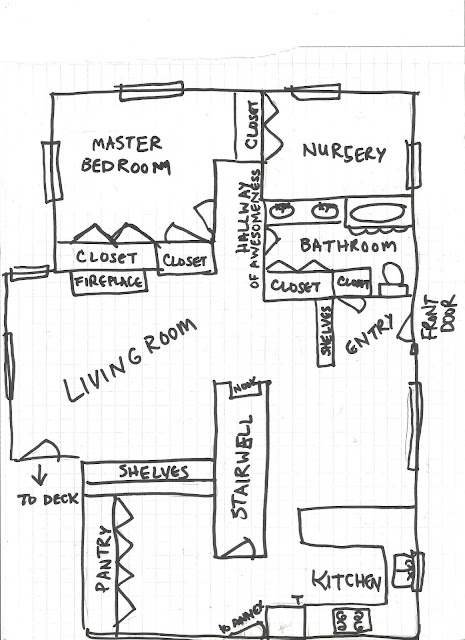 MASTER
BEDROOM
CLOSET
NURSERY
HALLWAY
OF AWESOMENESS
BATHROOM
CLOSET
CLOSET
FIREPLACE
CLOSET
CLOSET
SHELVES
ENTRY
FRONT
DOOR
LIVING ROOM
NOOK
STAIRWELL
TO DECK
SHELVES
PANTRY
KITCHEN
T